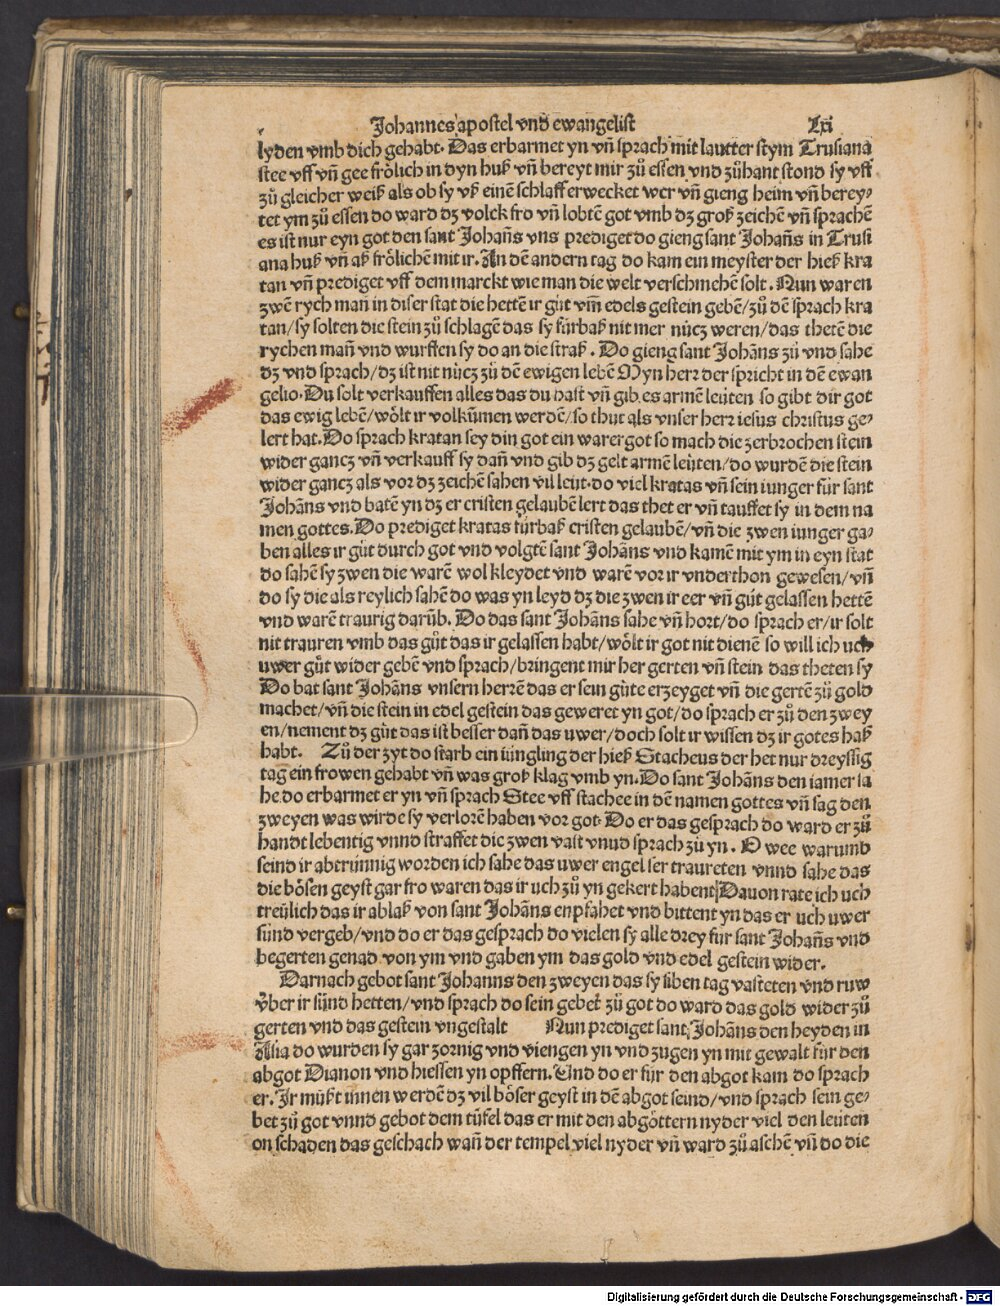 Johannes apostel vnd ewangelist Lxi
lyden vmb dich gehabt. Das erbarmet yn vñ sprach mit lautter stym Trusiana
stee vff vñ gee frölich in dyn huß vñ bereyt mir zů essen vnd zůhant stond sy vff
zů gleicher weiß als ob sy vß einē schlaff erwecket wer vñ gieng heim vñ berey⸗
tet ym zů essen do ward dz volck fro vñ lobtē got vmb dz groß zeichē vñ sprachē
es ist nur eyn got den sant Johañs vns prediget do gieng sant Johañs in Trusi
ana huß vñ aß frölichē mit ir. In dē andern tag do kam ein meyster der hieß kra
tan vñ prediget vff dem marckt wie man die welt verschmehē solt. Nun waren
zwē rych mañ in diser stat die hettē ir gůt vm̄ edels gestein gebē/zů dē sprach kra
tan/sy solten die stein zů schlagē das sy fürbaß nit mer nücz weren/das thetē die
rychen mañ vnd wurffen sy do an die straß. Do gieng sant Johāns zů vnd sahe
dz vnd sprach/dz ist nit nücz zů dē ewigen lebē Myn herr der spricht in dē ewan
gelio. Du solt verkauffen alles das du hast vñ gib es armē leüten so gibt dir got
das ewig lebē/wölt ir volkūmen werdē/so thut als vnser herr iesus christus ge⸗
lert hat. Do sprach kratan sey din got ein warer got so mach die zerbrochen stein
wider gancz vñ verkauff sy dañ vnd gib dz gelt armē leüten/do wurdē die stein
wider gancz als vor dz zeichē sahen vil leüt. do viel kratas vñ sein iunger für sant
Johāns vnd batē yn dz er cristen gelaubē lert das thet er vñ tauffet sy in dem na
men gottes. Do prediget kratas fürbaß cristen gelaubē/vñ die zwen iunger ga⸗
ben alles ir gůt durch got vnd volgtē sant Johāns vnd kamē mit ym in eyn stat
do sahē sy zwen die warē wol kleydet vnd warē vor ir vnderthon gewesen/vñ
do sy die als reylich sahē do was yn leyd dz die zwen ir eer vñ gůt gelassen hettē
vnd warē traurig darūb. Do das sant Johāns sahe vñ hort/do sprach er/ir solt
nit trauren vmb das gůt das ir gelassen habt/wölt ir got nit dienē so will ich uch
uwer gůt wider gebē vnd sprach/bringent mir her gerten vñ stein das theten sy
Do bat sant Johāns vnsern herrē das er sein gůte erzeyget vñ die gertē zů gold
machet/vñ die stein in edel gestein das geweret yn got/do sprach er zů den zwey
en/nement dz gůt das ist besser dañ das uwer/doch solt ir wissen dz ir gotes haß
habt. Zů der zyt do starb ein iüngling der hieß Stacheus der het nur dreyssig
tag ein frowen gehabt vñ was groß klag vmb yn. Do sant Johāns den iamer sa
he do erbarmet er yn vñ sprach Stee vff stachee in dē namen gottes vñ sag den
zweyen was wirde sy verlorē haben vor got. Do er das gesprach do ward er zů
handt lebentig vnnd straffet die zwen vast vnnd sprach zů yn. O wee warumb
seind ir abtrünnig worden ich sahe das uwer engel ser traureten vnnd sahe das
die bösen geyst gar fro waren das ir uch zů yn gekert habent Dauon rate ich uch
treülich das ir ablaß von sant Johāns enpfahet vnd bittent yn das er uch uwer
sünd vergeb/vnd do er das gesprach do vielen sy alle drey für sant Johañs vnd
begerten genad von ym vnd gaben ym das gold vnd edel gestein wider.
Darnach gebot sant Johanns den zweyen das sy siben tag vasteten vnd ruw
über ir sünd hetten/vnd sprach do sein gebet zů got do ward das gold wider zů
gerten vnd das gestein vngestalt Nun prediget sant Johāns den heyden in
Asia do wurden sy gar zornig vnd viengen yn vnd zugen yn mit gewalt für den
abgot Dianon vnd hiessen yn opffern. Vnd do er für den abgot kam do sprach
er. Ir müßt innen werdē dz vil böser geyst in dē abgot seind/vnd sprach sein ge⸗
bet zů got vnnd gebot dem tüfel das er mit den abgöttern nyder viel den leüten
on schaden das geschach wañ der tempel viel nyder vñ ward zů aschē vñ do die
Digitalisierung gefördert durch die Deutsche Forschungsgemeinschaft - DFG